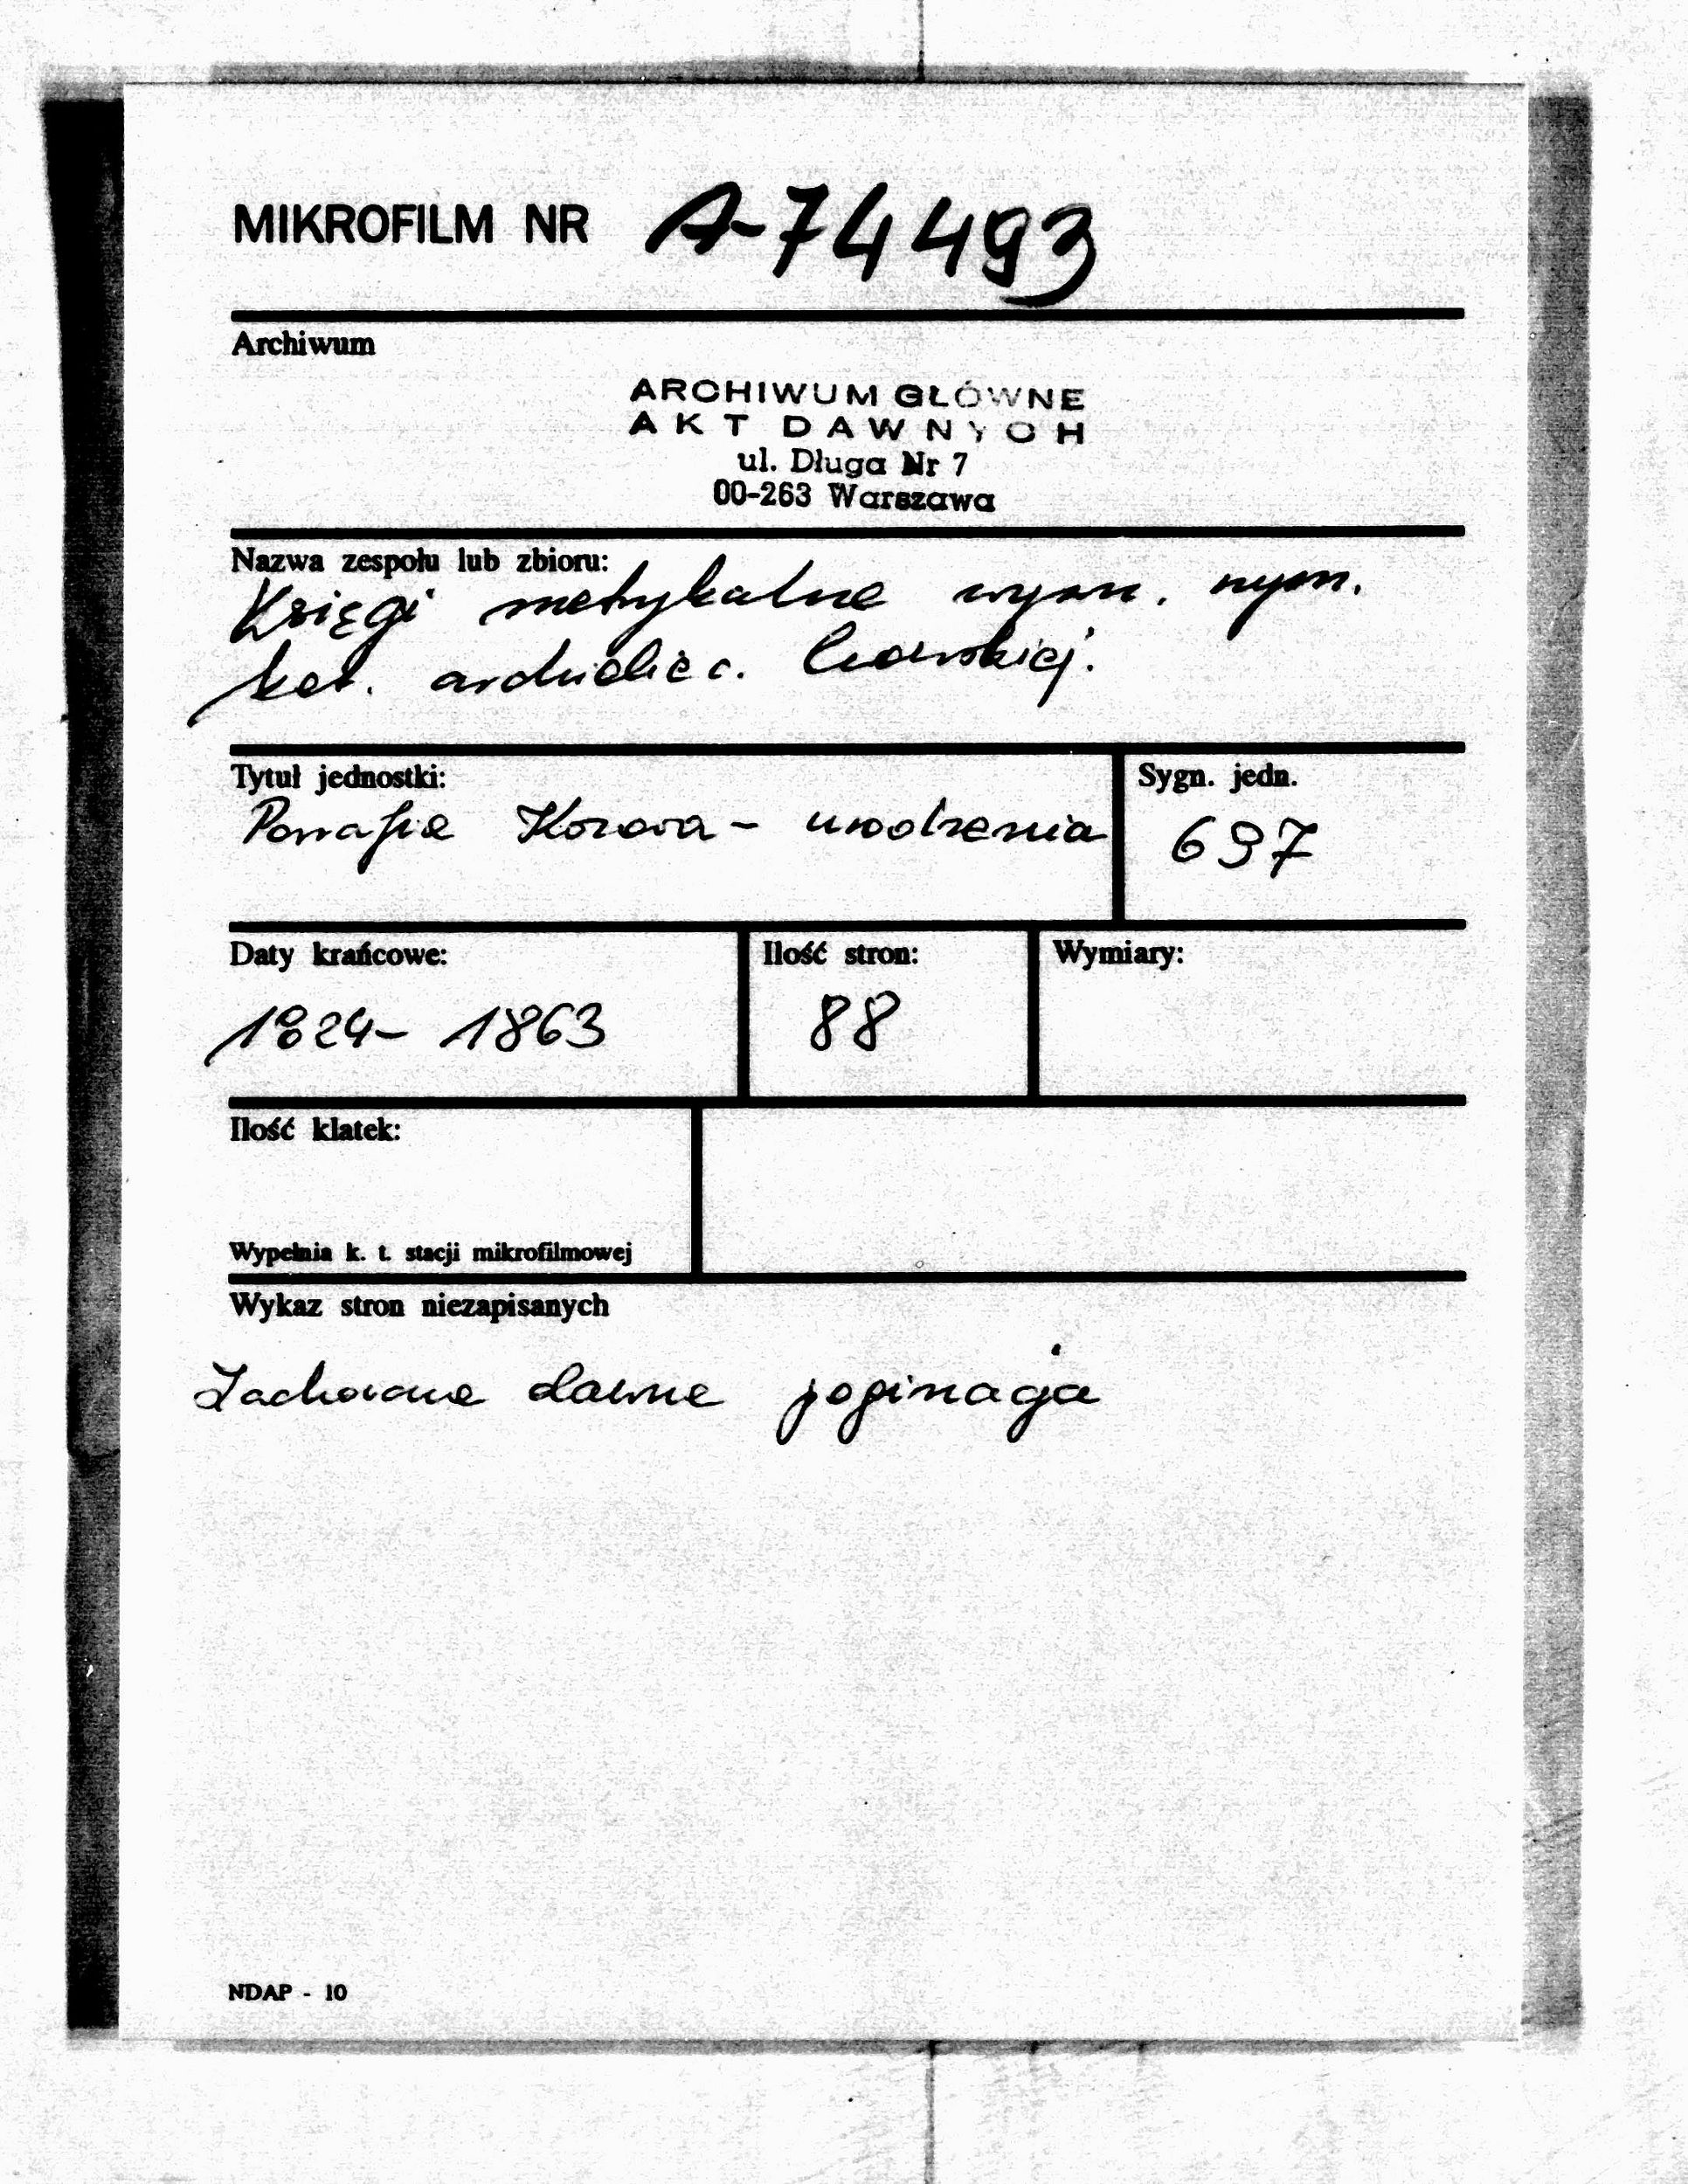 MIKROFILM NR A-74493
Archiwum
ARCHIWUM GŁÓWNE
AKT DAWNYCH
ul. Długa Nr 7
00-263 Warszawa
Nazwa zespołu lub zbioru:
Księgi metrykalne wyzn. rzym.
kat. archidiec. lwowskiej.
Tytuł jednostki:
Parafia Kozowa - urodzenia
Sygn. jedn.
697
Daty krańcowe:
1824- 1863
Ilość stron:
88
Wymiary:
Ilość klatek:
Wypełnia k. t. stacji mikrofilmowej
Wykaz stron niezapisanych
Zachowane dawne paginacja
NDAP - 10